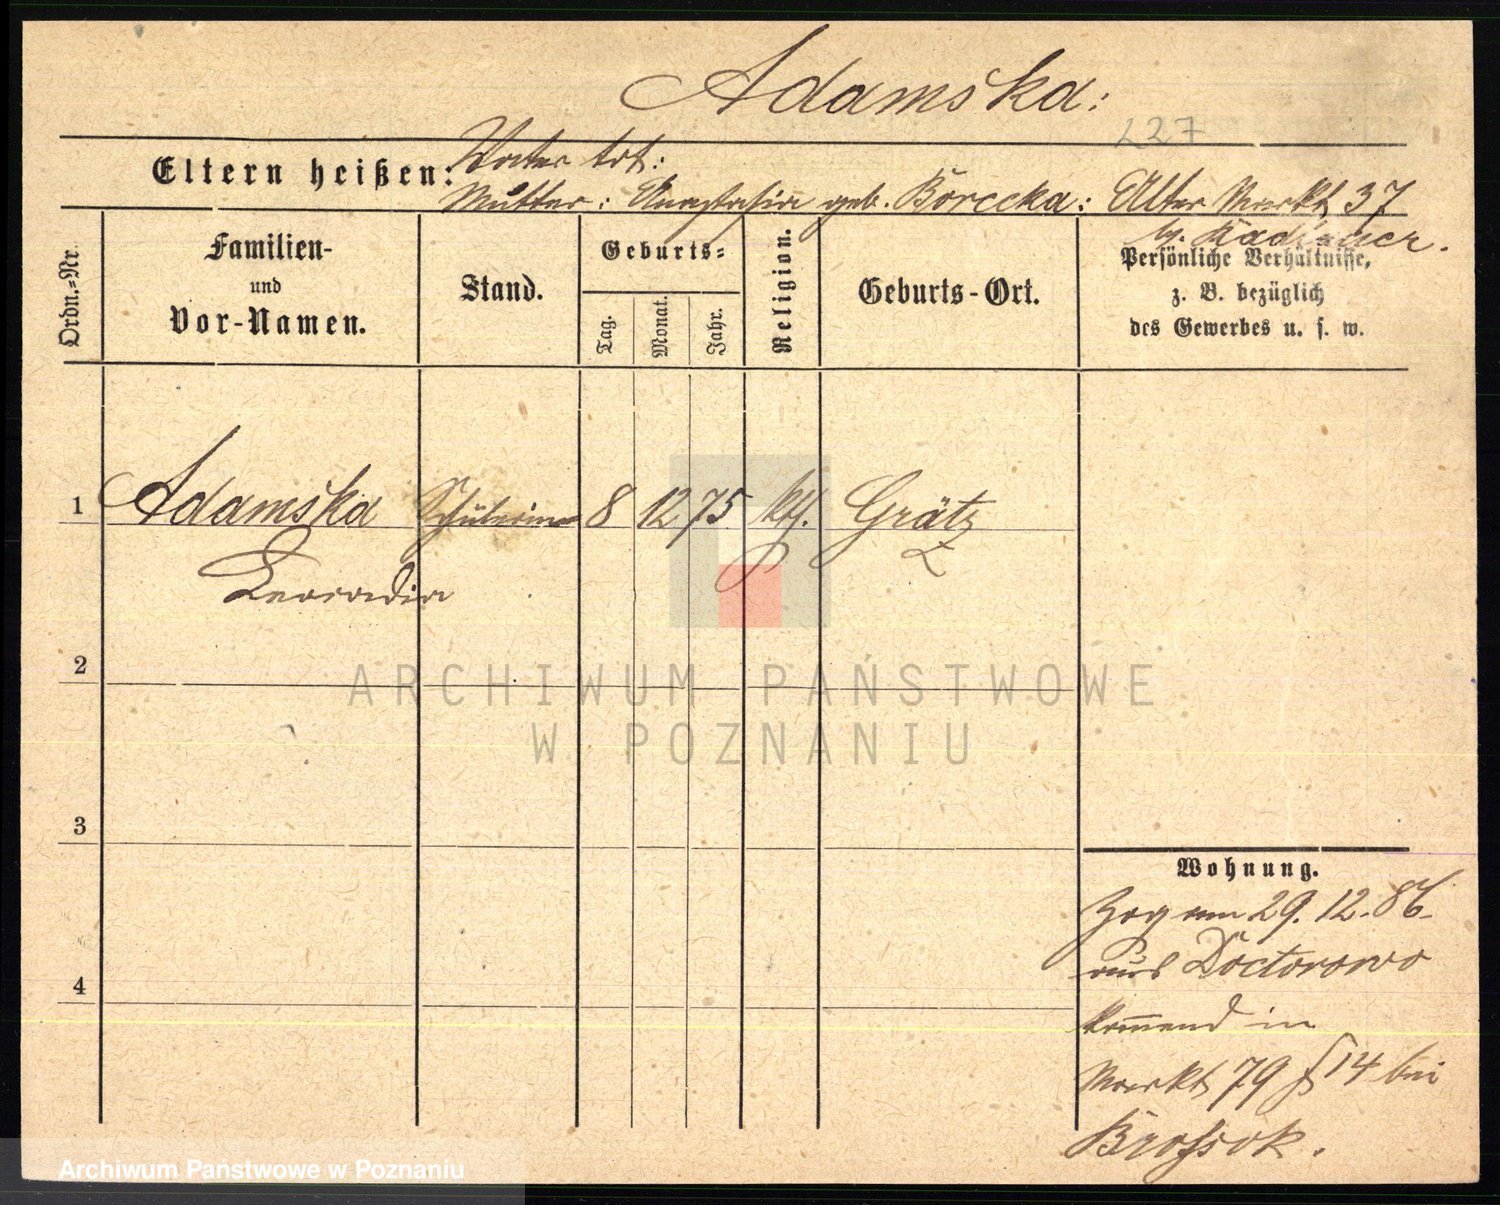 Adamska:
227
Eltern heißen: Vater tot:
Mutter: Anastasia geb. Borecka: Alter Markt 37
b. Kadlauer.
Ordn.-Nr.
Familien-
und
Vor-Namen.
Stand.
Geburts-
Tag.
Monat.
Jahr.
Religion.
Geburts-Ort.
Persönliche Verhältnisse,
z. B. bezüglich
des Gewerbes u. s. w.
1 Adamska Schülerin 8 12 75 kth. Grätz
Leocadia
2
3
4
Wohnung.
Zog am 29. 12. 86
aus Doctorowo
kom̅end in
Markt 79 14 bei
Brossok.
ARCHIWUM PAŃSTWOWE
W POZNANIU
Archiwum Państwowe w Poznaniu